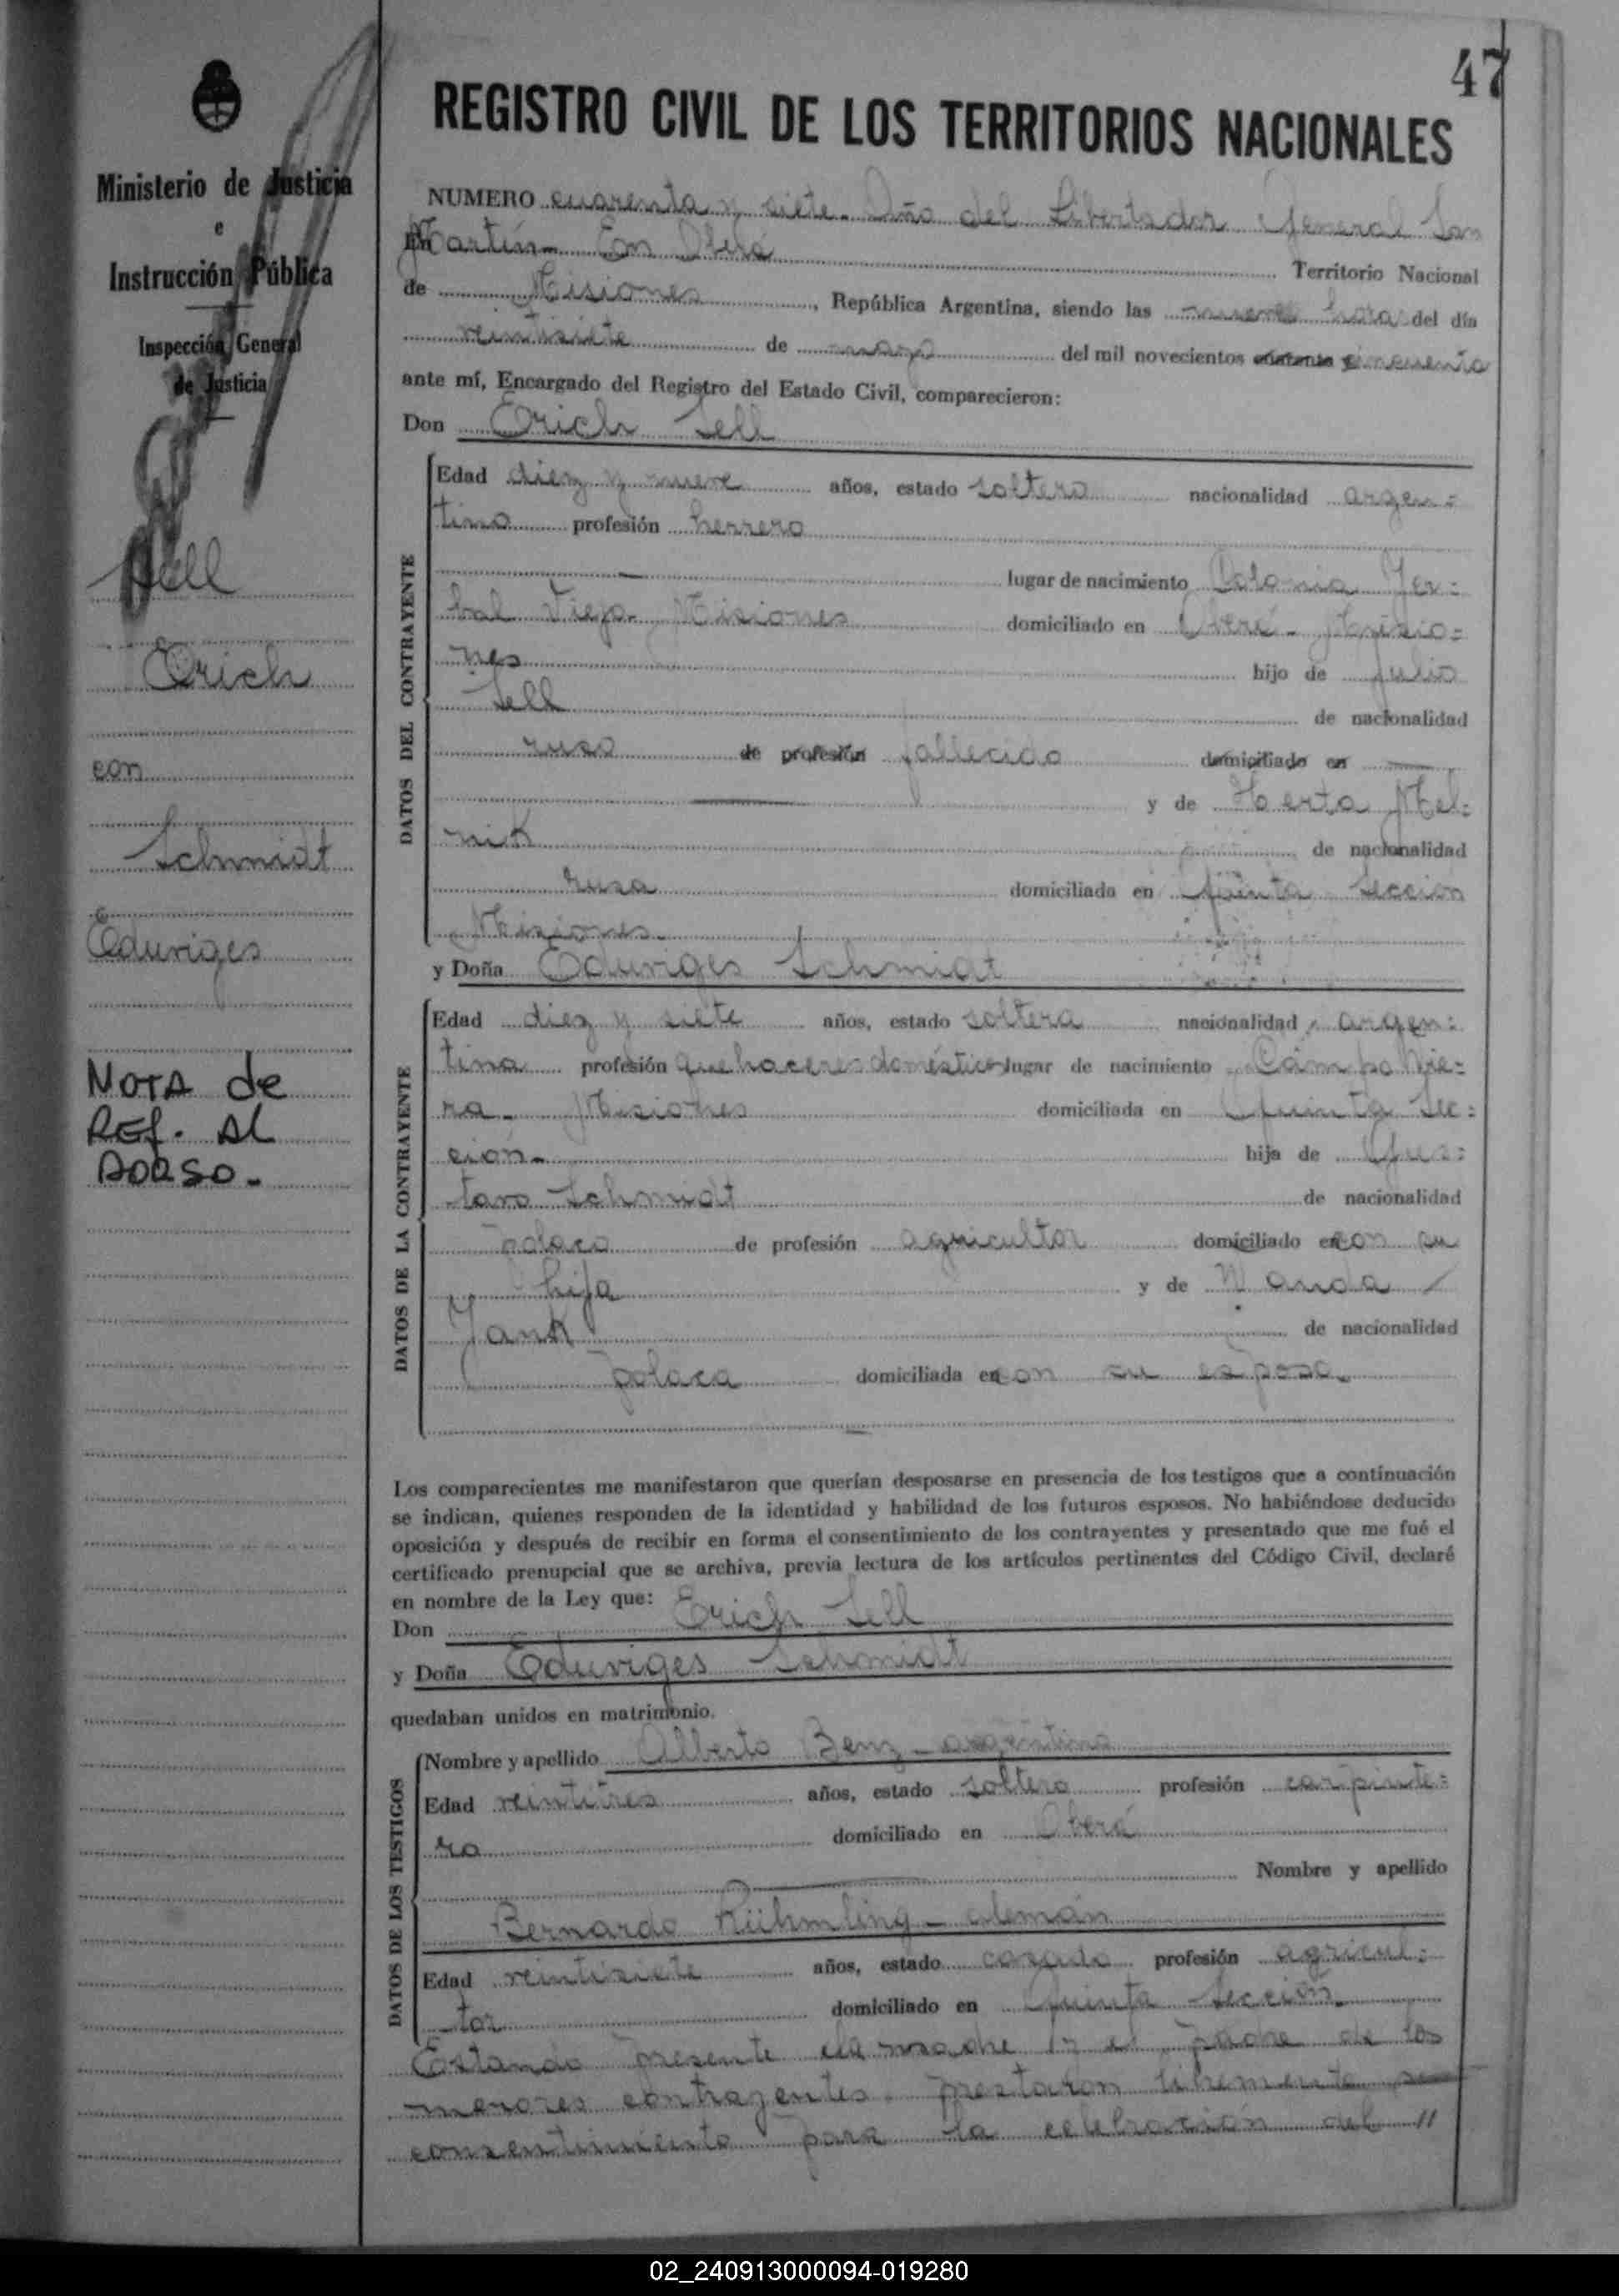 47
REGISTRO CIVIL DE LOS TERRITORIOS NACIONALES
Ministerio de Justicia
e
Instrucción Pública
Inspección General
de Justicia
Sell
Erich
con
Schmidt
Eduviges
NOTA de
REF. AL
DORSO.-
NUMERO cuarenta y siete.- Año del Libertador General San
En Martín.- En Oberá Territorio Nacional
de Misiones, República Argentina, siendo las nueve horas del día
veintisiete de mayo del mil novecientos cuarenta y cincuenta
ante mí, Encargado del Registro del Estado Civil, comparecieron:
Don Erich Sell
DATOS DEL CONTRAYENTE
Edad diez y nueve años, estado soltero nacionalidad argen=
tino profesión herrero
lugar de nacimiento Colonia Yer=
bal Viejo- Misiones domiciliado en Oberá- Misio=
nes hijo de Julio
Sell de nacionalidad
ruso de profesión fallecido domiciliado en
y de Herta Mel=
nik de nacionalidad
rusa domiciliada en Quinta Sección
Misiones.
y Doña Eduviges Schmidt
DATOS DE LA CONTRAYENTE
Edad diez y siete años, estado soltera nacionalidad argen=
tina profesión quehaceres domésticos lugar de nacimiento Campo Vie=
ra- Misiones domiciliada en Quinta Sec=
ción- hija de Gus=
tavo Schmidt de nacionalidad
polaco de profesión agricultor domiciliado en con su
hija y de Wanda
Yank de nacionalidad
polaca domiciliada en con su esposo.
Los comparecientes me manifestaron que querían desposarse en presencia de los testigos que a continuación
se indican, quienes responden de la identidad y habilidad de los futuros esposos. No habiéndose deducido
oposición y después de recibir en forma el consentimiento de los contrayentes y presentado que me fué el
certificado prenupcial que se archiva, previa lectura de los artículos pertinentes del Código Civil, declaré
en nombre de la Ley que:
Don Erich Sell
y Doña Eduviges Schmidt
quedaban unidos en matrimonio.
DATOS DE LOS TESTIGOS
Nombre y apellido Alberto Benz - argentino
Edad veintitres años, estado soltero profesión carpinte=
ro domiciliado en Oberá
Nombre y apellido
Bernardo Kühmling - alemán
Edad veintisiete años, estado casado profesión agricul=
tor domiciliado en Quinta Sección
Estando presente la madre y el padre de los
menores contrayentes prestaron libremente su
consentimiento para la celebración del "
02_240913000094-019280